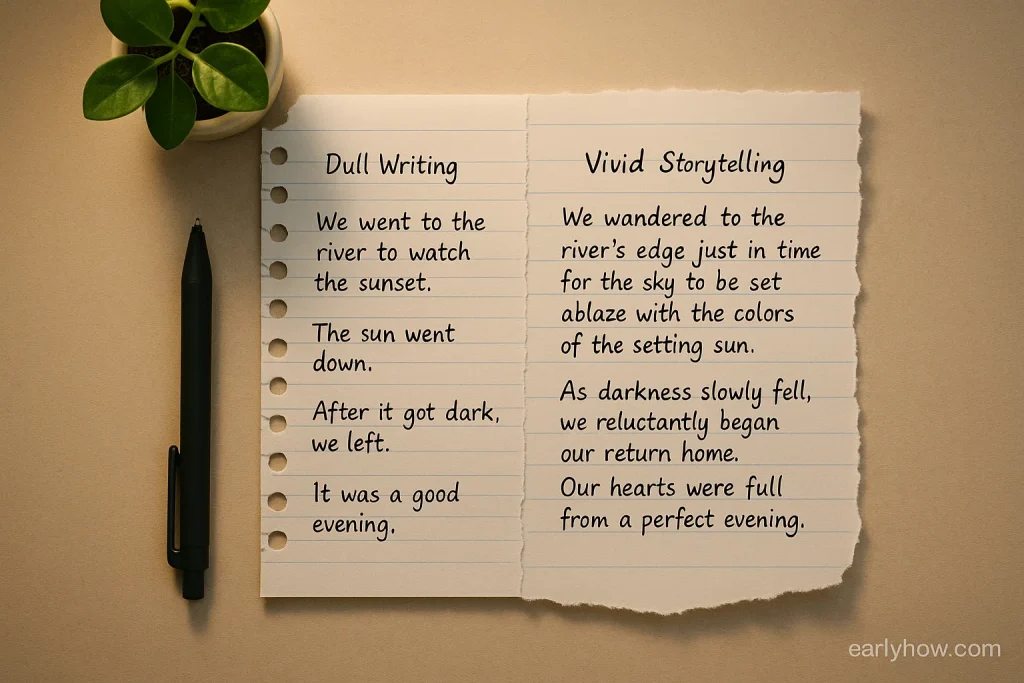 Dull Writing
We went to the
river to watch
the sunset.
The sun went
down.
After it got dark,
we left.
It was a good
evening.
Vivid Storytelling
We wandered to the
river's edge just in time
for the sky to be set
ablaze with the colors
of the setting sun.
As darkness slowly fell,
we reluctantly began
our return home.
Our hearts were full
from a perfect evening.
earlyhow.com